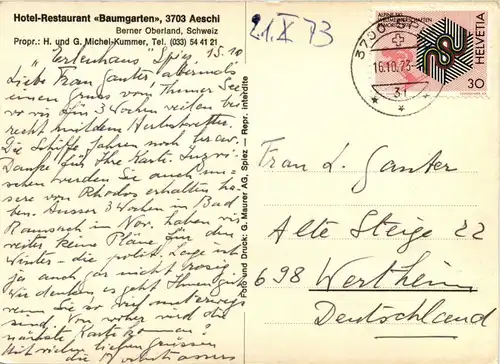 Hotel-Restaurant «Baumgarten», 3703 Aeschi
Berner Oberland, Schweiz
Propr.: H. und G. Michel-Kummer, Tel. (033) 54 41 21
"Erlenhaus" Spiez, 15.10
Liebe Frau Ganter abermals
einen Gruss vom Thuner See
wo wir für 3 Wochen weilen bei
recht mildem Herbstwetter.
Die Schiffe fahren noch
Danke für Ihre Karte. Inzwi-
schen werden Sie auch un-
sere von Rhodos erhalten ha-
ben. Ausser 3 Wochen in Bad
Ramsach im Nov. haben wir
weiter keine Pläne für den
Winter - die polit. Lage ist
ja auch gar nicht rosig.
Wir denken es geht Ihnen gut
wenn Sie so viel unterwegs
sind. Von woher wird die
nächste Karte kommen?
Mit vielen lieben Grüssen
die
Foto und Druck: G. Maurer AG, Spiez — Repr. interdite
21.X 73
3700 SP
16.10.73
HELVETIA
30
Frau L. Ganter
Alte Steige 22
698 Wertheim
Deutschland